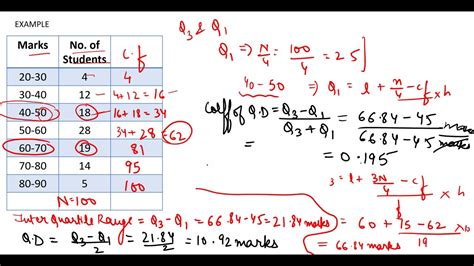 EXAMPLE
Marks No. of Students C.f
20-30 4 4
30-40 12 4+12=16
40-50 18 16+18=34
50-60 28 34+28=62
60-70 19 81
70-80 14 95
80-90 5 100
N=100
Q3 & Q1
Q1 ⇒ N/4 = 100/4 = 25]
40-50 ⇒ Q1 = l + n/4 - cf × h
Coeff of Q.D = Q3-Q1/Q3+Q1 = 66.84-45/66.84-45 marks
= 0.195
3 = l + 3N/4 - cf × h
= 60 + 75-62/19 × 10
= 66.84 marks
Inter Quartile Range = Q3-Q1 = 66.84-45=21.84 marks
Q.D = Q3-Q1/2 = 21.84/2 = 10.92 marks